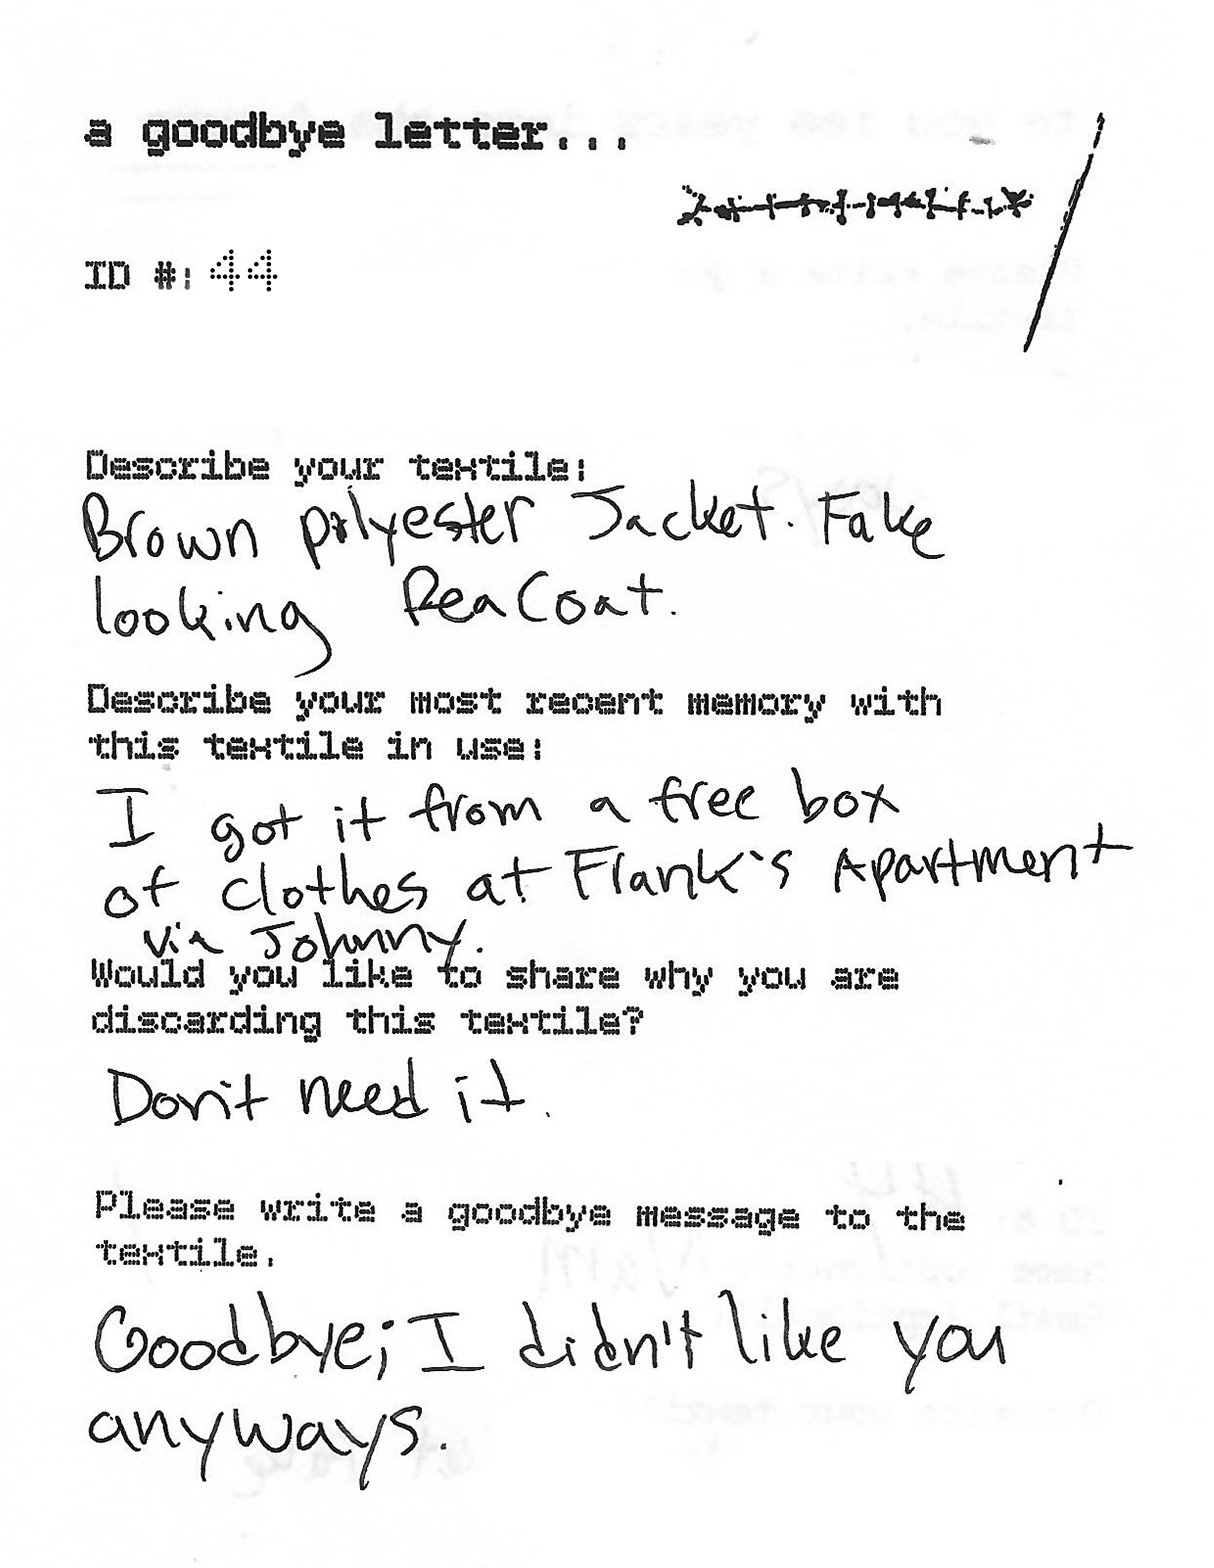 a goodbye letter...
ID #: 44
Describe your textile:
Brown polyester Jacket. Fake
looking PeaCoat.
Describe your most recent memory with
this textile in use:
I got it from a free box
of clothes at Frank's Apartment
via Johnny.
Would you like to share why you are
discarding this textile?
Don't need it.
Please write a goodbye message to the
textile.
Goodbye; I didn't like you
anyways.